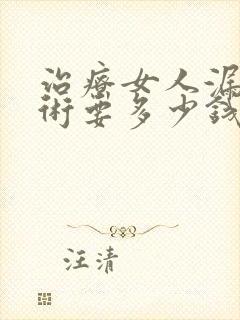 治療女人漏
術要多少錢
汪清